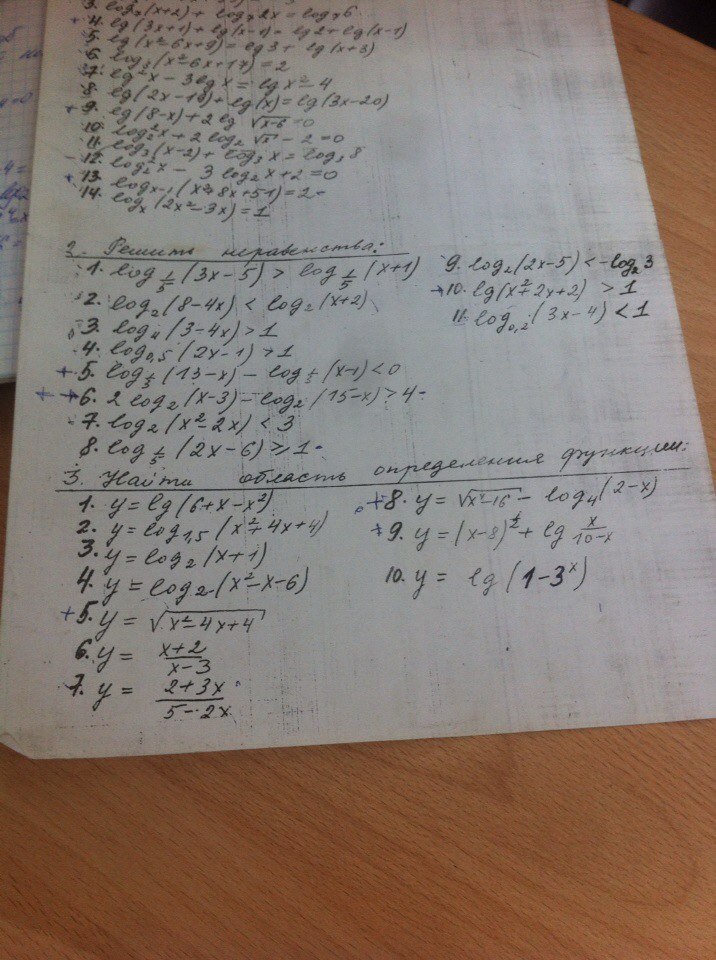 3. log₃(x+2) + log₃ 2x = log₃ 6
+ 4. lg(3x+1) + lg(x-1) = lg 2 + lg(x-1)
5. lg(x²-6x+9) = lg 3 + lg(x+3)
6. log₃(x²-6x+17) = 2
7. lg²x - 3 lg x = lg x² - 4
8. lg(2x-19) + lg(x) = lg(3x-20)
+ 9. lg(8-x) + 2 lg √x-6 = 0
10. log₂²x + 2 log₂ √x - 2 = 0
11. log₃(x-2) + log₃ x = log₃ 8
- 12. log₂²x - 3 log₂ x + 2 = 0
+ 13. log x-1 (x²-8x+51) = 2 -
14. logₓ(2x²-3x) = 1
2. Решить неравенства:
1. log 1/5 (3x-5) > log 1/5 (x+1)
2. log₂(8-4x) < log₂(x+2)
3. log₄(3-4x) > 1
4. log₀,₅(2x-1) > 1
+ 5. log 1/3 (13-x) - log 1/3 (x-1) < 0
+ + 6. 2 log₂(x-3) - log₂(15-x) > 4 -
7. log₂(x²-2x) < 3
8. log 1/5 (2x-6) ≥ 1 -
9. log₂(2x-5) < -log₂3
10. lg(x²+2x+2) > 1
11. log₀,₂(3x-4) < 1
3. Найти область определения функции:
1. y = lg(6+x-x²)
2. y = log₁,₅(x²+4x+4)
3. y = log₂(x+1)
4. y = log₂(x²-x-6)
+ 5. y = √x²-4x+4
6. y = x+2 / x-3
7. y = 2+3x / 5-2x
+ 8. y = √x²-16 - log₄(2-x)
+ 9. y = (x-8)^½ + lg x / 10-x
10. y = lg(1-3ˣ)